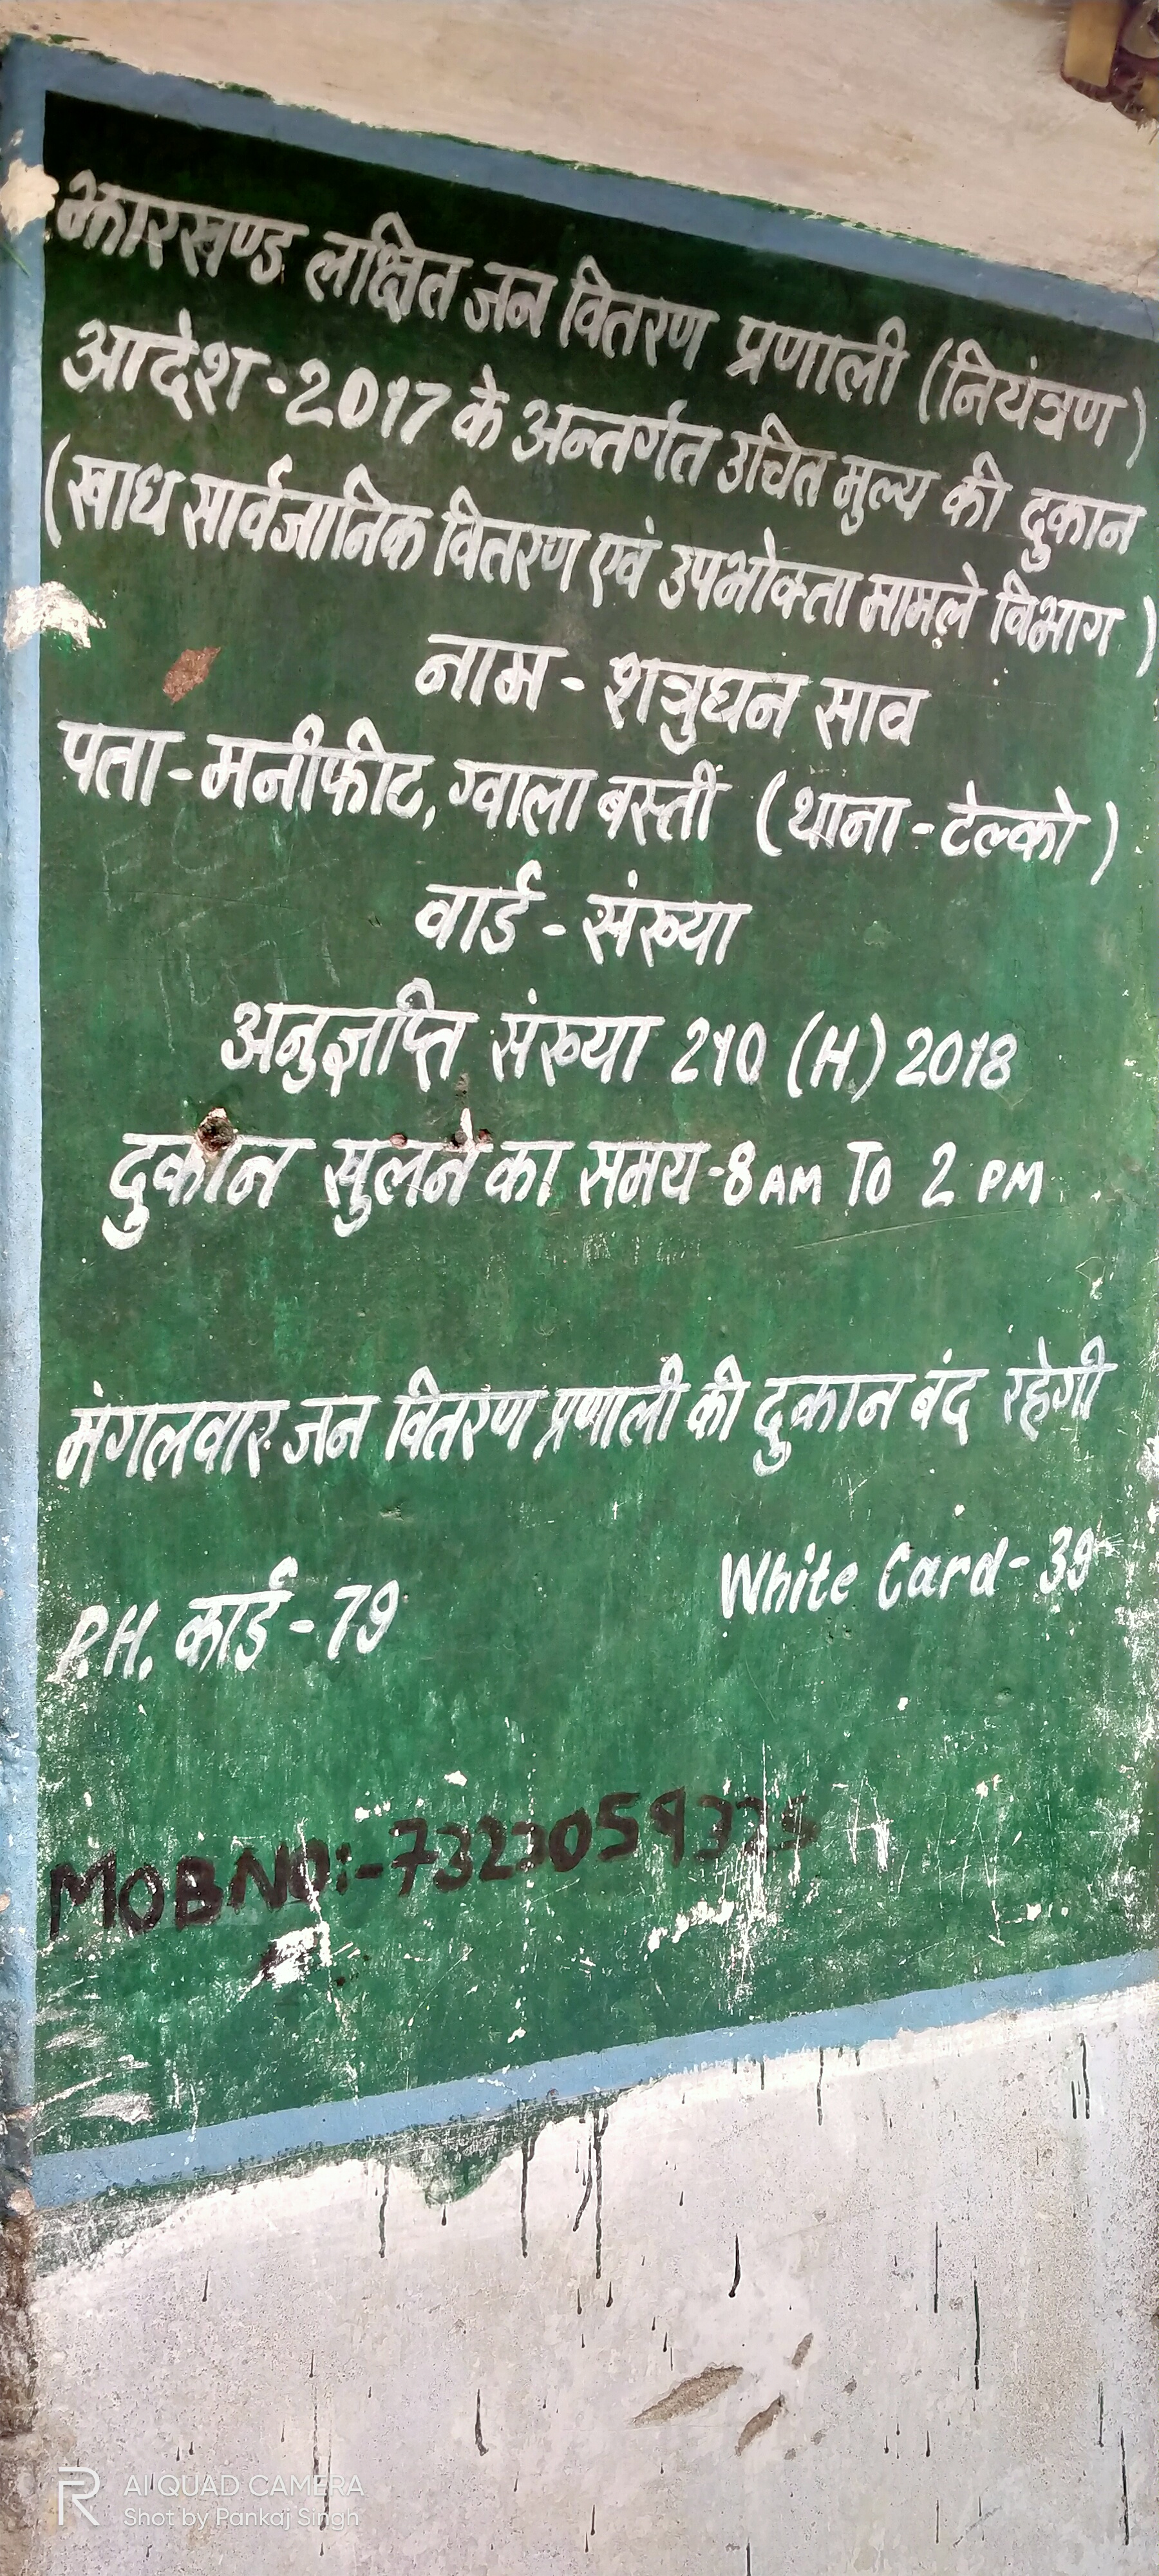 झारखण्ड लक्षित जन वितरण प्रणाली (नियंत्रण)
आदेश-2017 के अन्तर्गत उचित मुल्य की दुकान
(खाध सार्वजानिक वितरण एवं उपभोक्ता मामले विभाग)
नाम - शत्रुघन साव
पता-मनीफीट, ग्वाला बस्ती (थाना-टेल्को)
वार्ड - संख्या
अनुज्ञप्ति संख्या 210 (H) 2018
दुकान खुलने का समय-8 AM TO 2 PM
मंगलवार जन वितरण प्रणाली की दुकान बंद रहेगी
P.H. कार्ड-79
White Card-39
MOB NO:-
AI QUAD CAMERA
Shot by Pankaj Singh